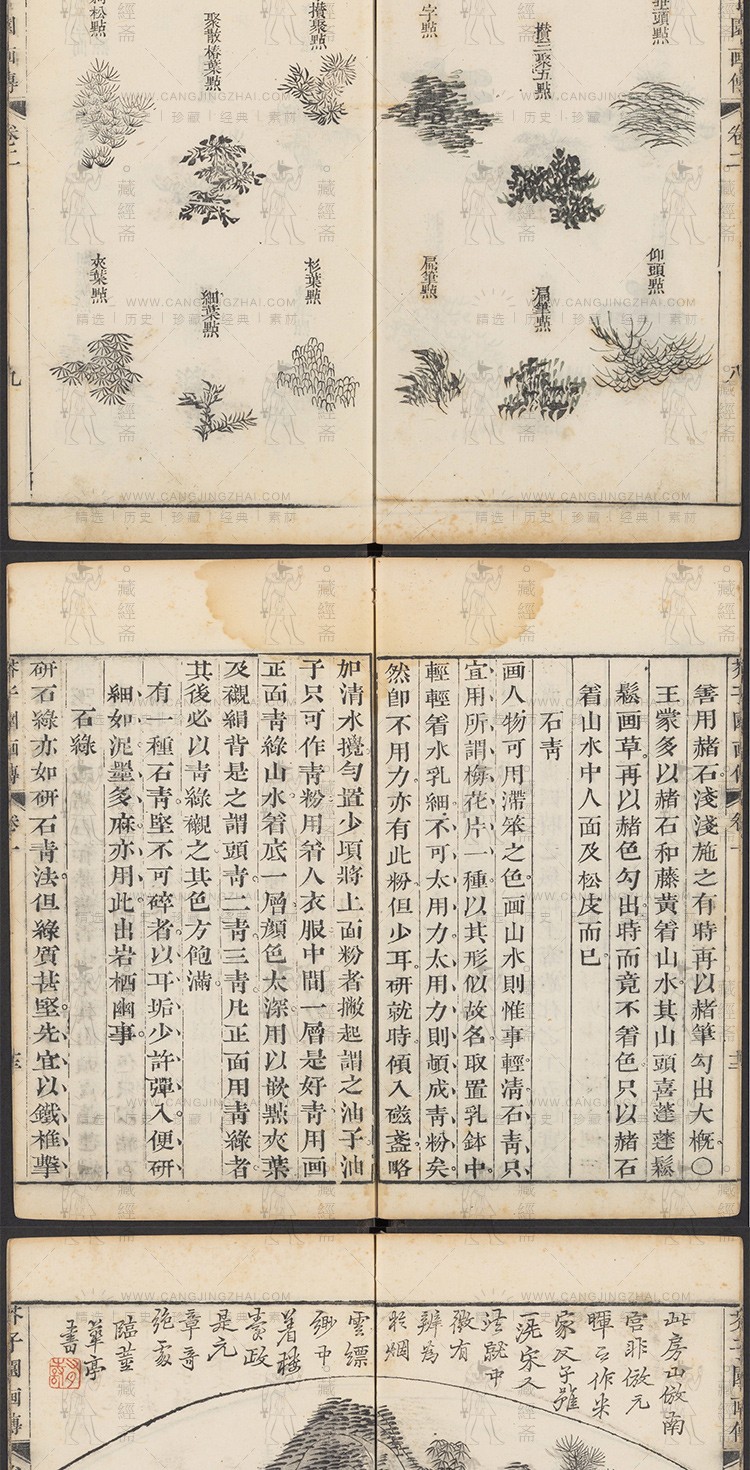 垂頭點
攢三聚五點
字點
仰頭點
扁筆點
扁筆點
攢聚點
聚散椿葉點
松點
杉葉點
細葉點
夾葉點
卷二
八
卷二
九
善用赭石淺淺施之有時再以赭筆勾出大槪〇
王蒙多以赭石和藤黄着山水其山頭喜蓬蓬鬆
鬆画草再以赭色勾出時而竟不着色只以赭石
着山水中人面及松皮而已
石靑
画人物可用滯笨之色画山水則惟事輕淸石靑只
宜用所謂梅花片一種以其形似故名取置乳鉢中
輕輕着水乳細不可太用力太用力則頓成靑粉矣
然卽不用力亦有此粉但少耳研就時傾入磁盞略
加淸水攪勻置少頃將上面粉者撇起謂之油子油
子只可作靑粉用着人衣服中間一層是好靑用画
正面靑綠山水着底一層顔色太深用以嵌點夾葉
及襯絹背是之謂頭靑二靑三靑凡正面用靑綠者
其後必以靑綠襯之其色方飽滿
有一種石靑堅不可碎者以耳垢少許彈入便硏
細如泥墨多麻亦用此出岩栖幽事
石綠
硏石綠亦如硏石靑法但綠質甚堅先宜以鐵椎擊
芥子園画傳
卷一
此房山倣南
宮非倣元
暉之作米
家父子雖
一洗宋人
法就中
微有
辨爲
雲縹
緲中
着樓
臺政
是元
章奇
絶處
臨董
華亭
書
芥子園画傳
藏經斋
WWW.CANGJINGZHAI.COM
精选 | 历史 | 珍藏 | 经典 | 素材